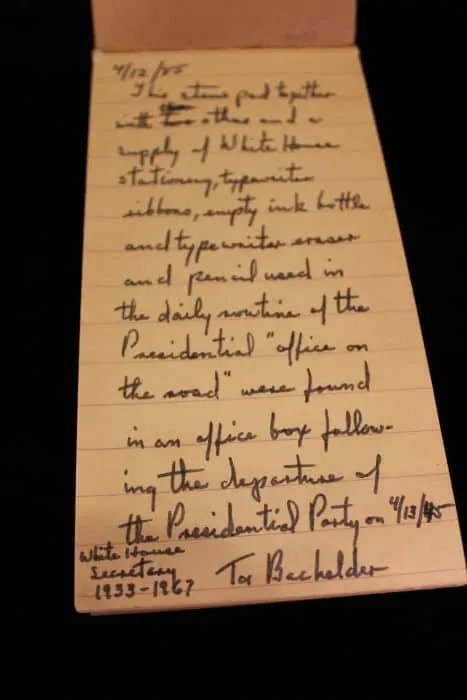 4/12/85
This steno pad together
with two others and a
supply of White House
stationery, typewriter
ribbons, empty ink bottle
and typewriter eraser
and pencil used in
the daily routine of the
Presidential "office on
the road" were found
in an office box follow-
ing the departure of
the Presidential Party on 4/13/45
White House
Secretary
1933-1967
Toi Bachelder